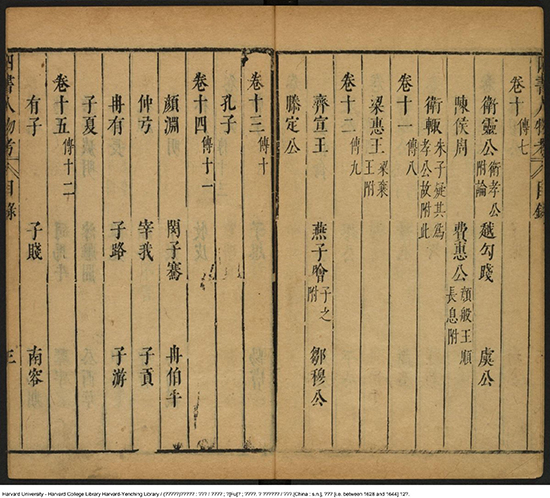 四書人物考 目錄
卷十 傳七
衛靈公 衛孝公附論 越勾踐 虞公
陳侯周 費惠公 顏般王順長息附
衛輒 朱子疑其為孝公故附此
卷十一 傳八
梁惠王 梁襄王附
卷十二 傳九
齊宣王 燕子噲 子之附 鄒穆公
滕定公
卷十三 傳十
孔子
卷十四 傳十一
顏淵 閔子騫 冉伯牛
仲弓 宰我 子貢
冉有 子路 子游
子夏
卷十五 傳十二
有子 子賤 南容
四書人物考 目錄 三
Harvard University - Harvard College Library Harvard-Yenching Library / (?????)????? : ??? / ???? ; ?[Hu]? ; ????. ? ?????? / ??? [China : s.n.], ??? [i.e. between 1628 and 1644] 12?.